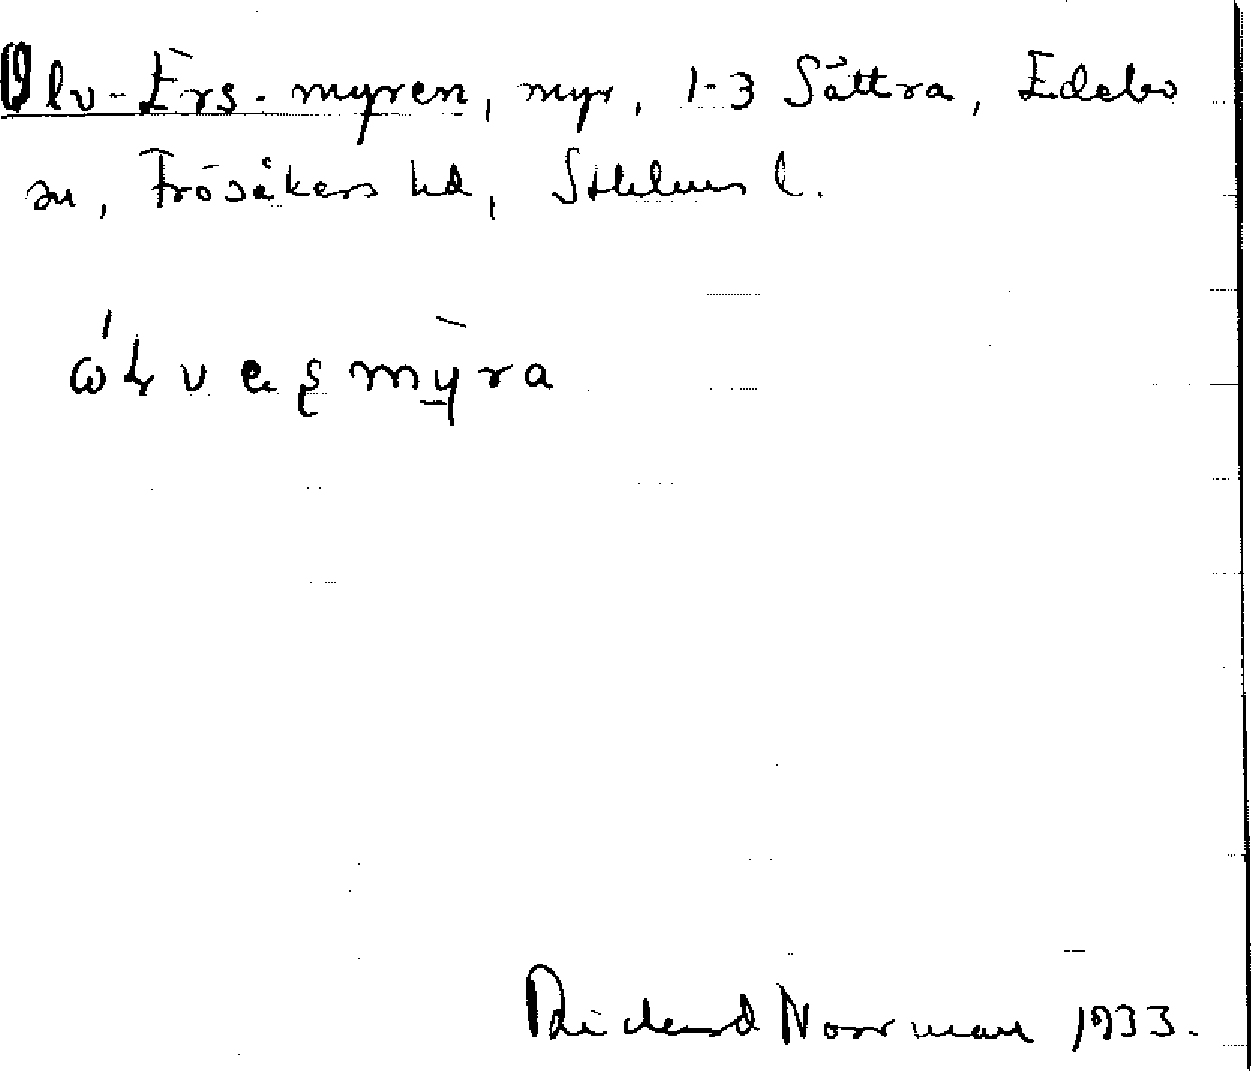 Olv-Ers-myren, myr, 1-3 Sättra, Edebo
sn, Frösåkers hd, Sthlms l.
myra
Richard Norrman 1933.